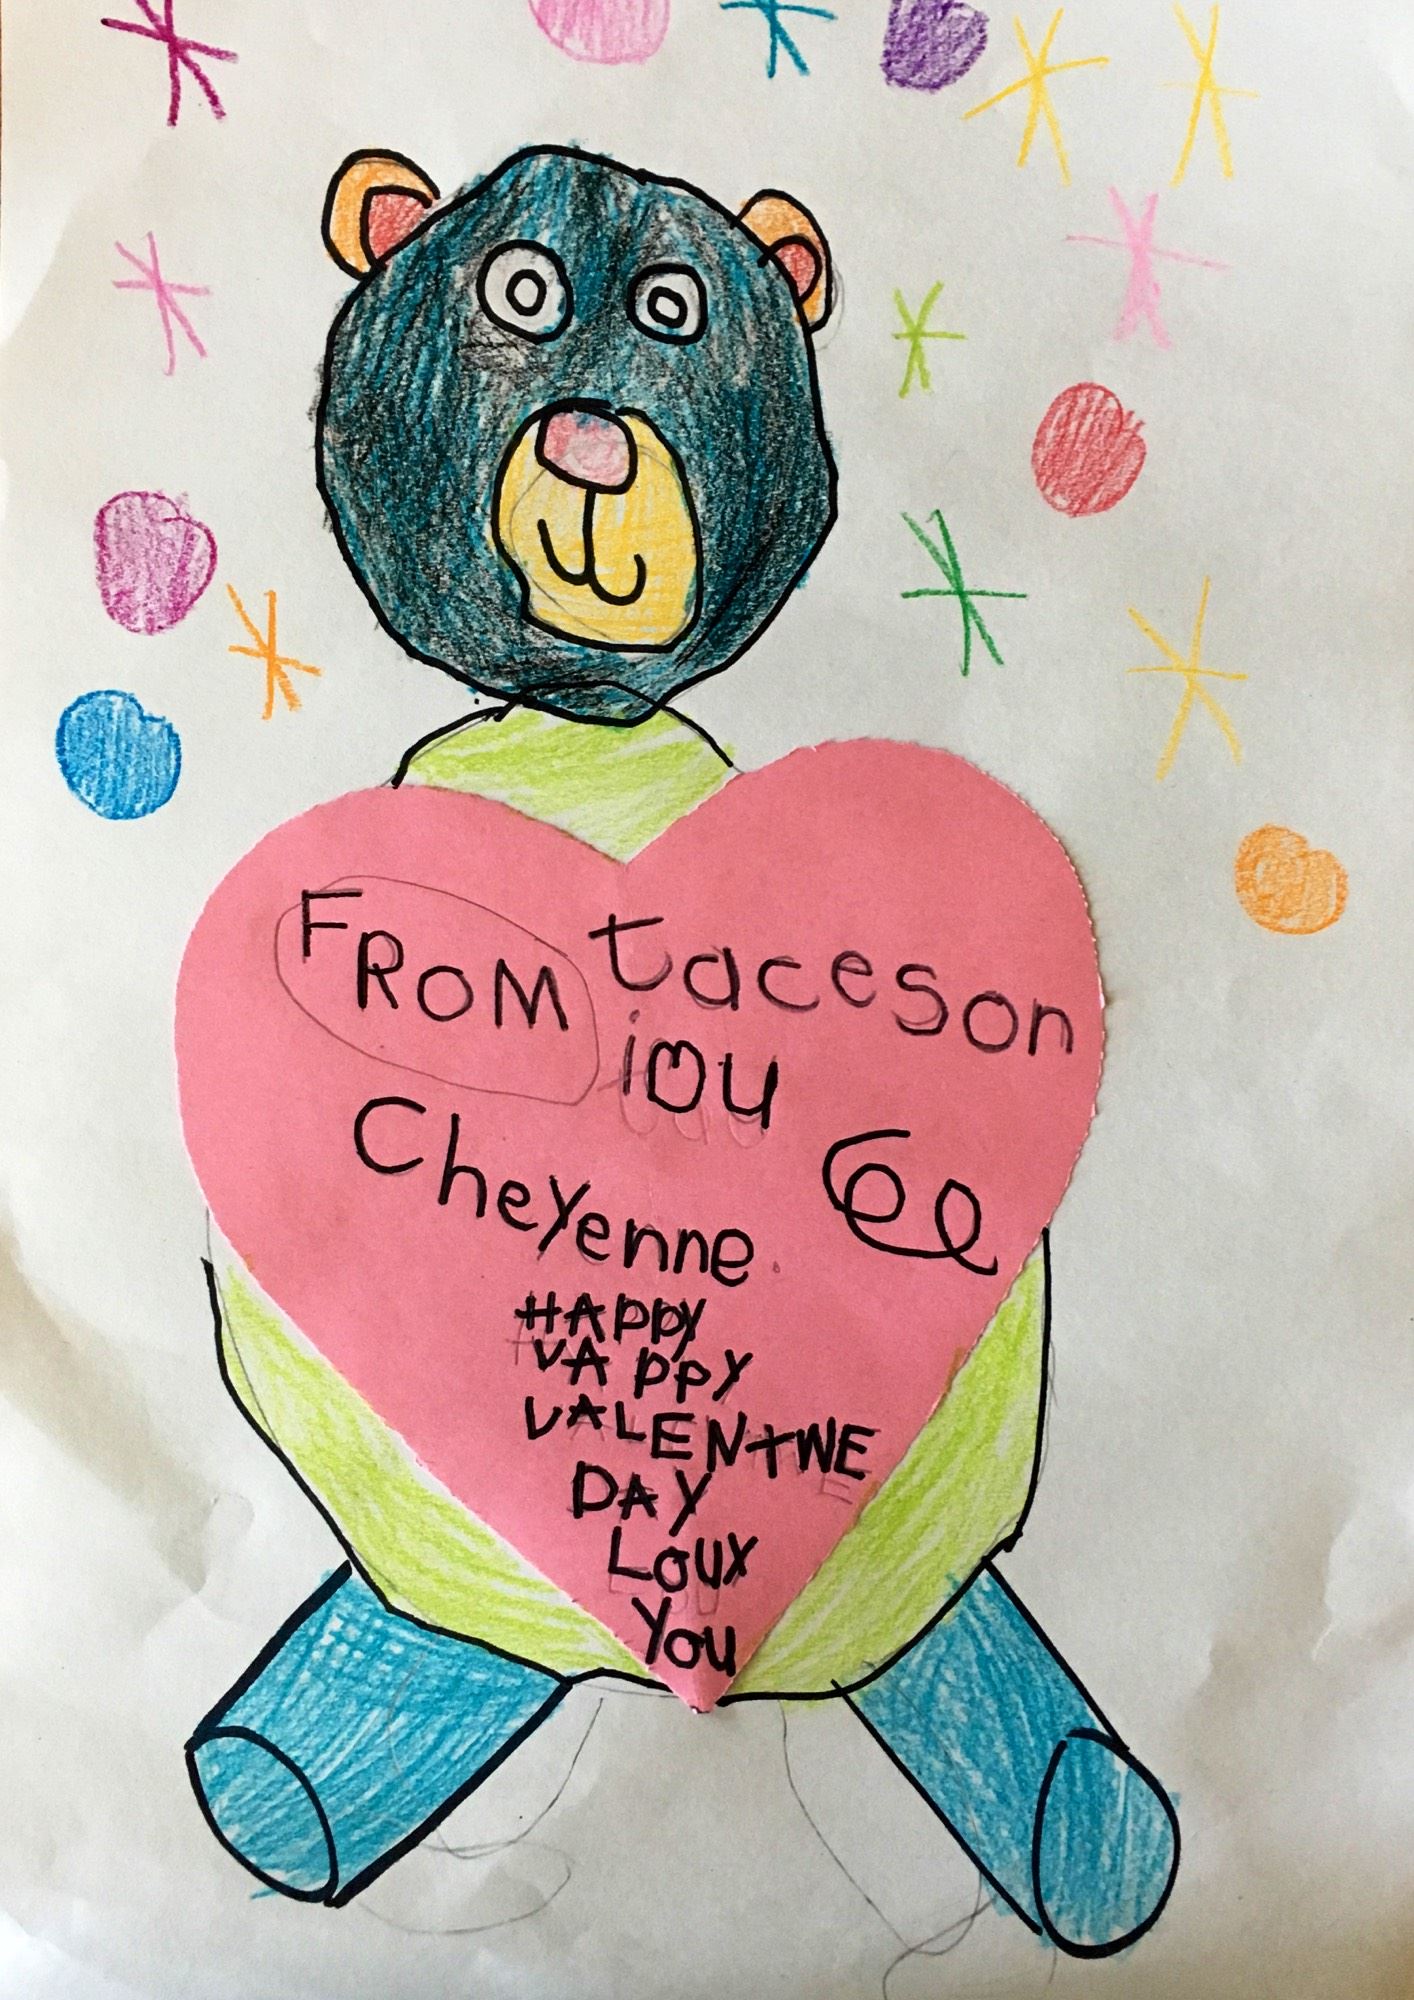 FROM taceson
iou
Cheyenne
HAppy
VAppy
VALENTWE
DAY
Loux
You